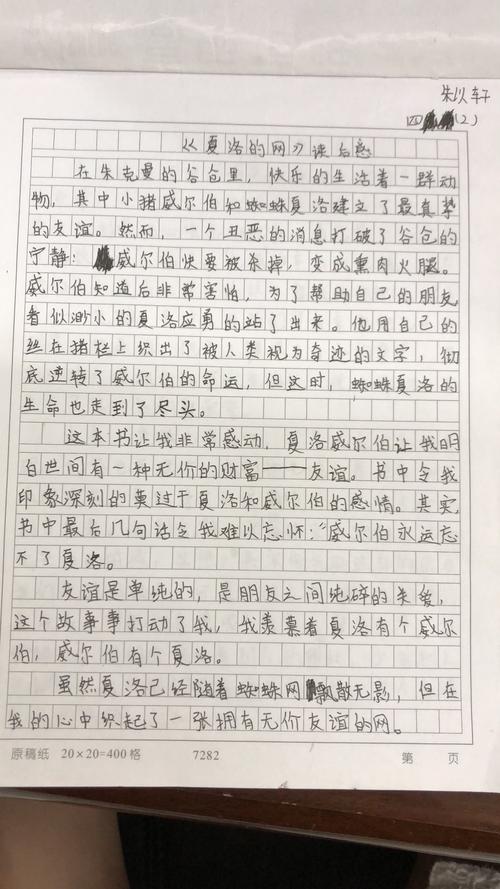 朱以轩
四(2)
《夏洛的网》读后感
在朱克曼的谷仓里，快乐的生活着一群动
物，其中小猪威尔伯和蜘蛛夏洛建立了最真挚
的友谊。然而，一个丑恶的消息打破了谷仓的
宁静：威尔伯快要被杀掉，变成熏肉火腿。
威尔伯知道后非常害怕，为了帮助自己的朋友
看似渺小的夏洛应勇的站了出来。他用自己的
丝在猪栏上织出了被人类视为奇迹的文字，彻
底逆转了威尔伯的命运，但这时，蜘蛛夏洛的
生命也走到了尽头。
这本书让我非常感动，夏洛威尔伯让我明
白世间有一种无价的财富——友谊。书中令我
印象深刻的莫过于夏洛和威尔伯的感情。其实
书中最后几句话令我难以忘怀："威尔伯永远忘
不了夏洛。
友谊是单纯的，是朋友之间纯碎的关爱，
这个故事事打动了我，我羡慕着夏洛有个威尔
伯，威尔伯有个夏洛。
虽然夏洛已经随着蜘蛛网飘散无影，但在
我的心中织起了一张拥有无价友谊的网。
原稿纸 20×20=400格 7282 第 页